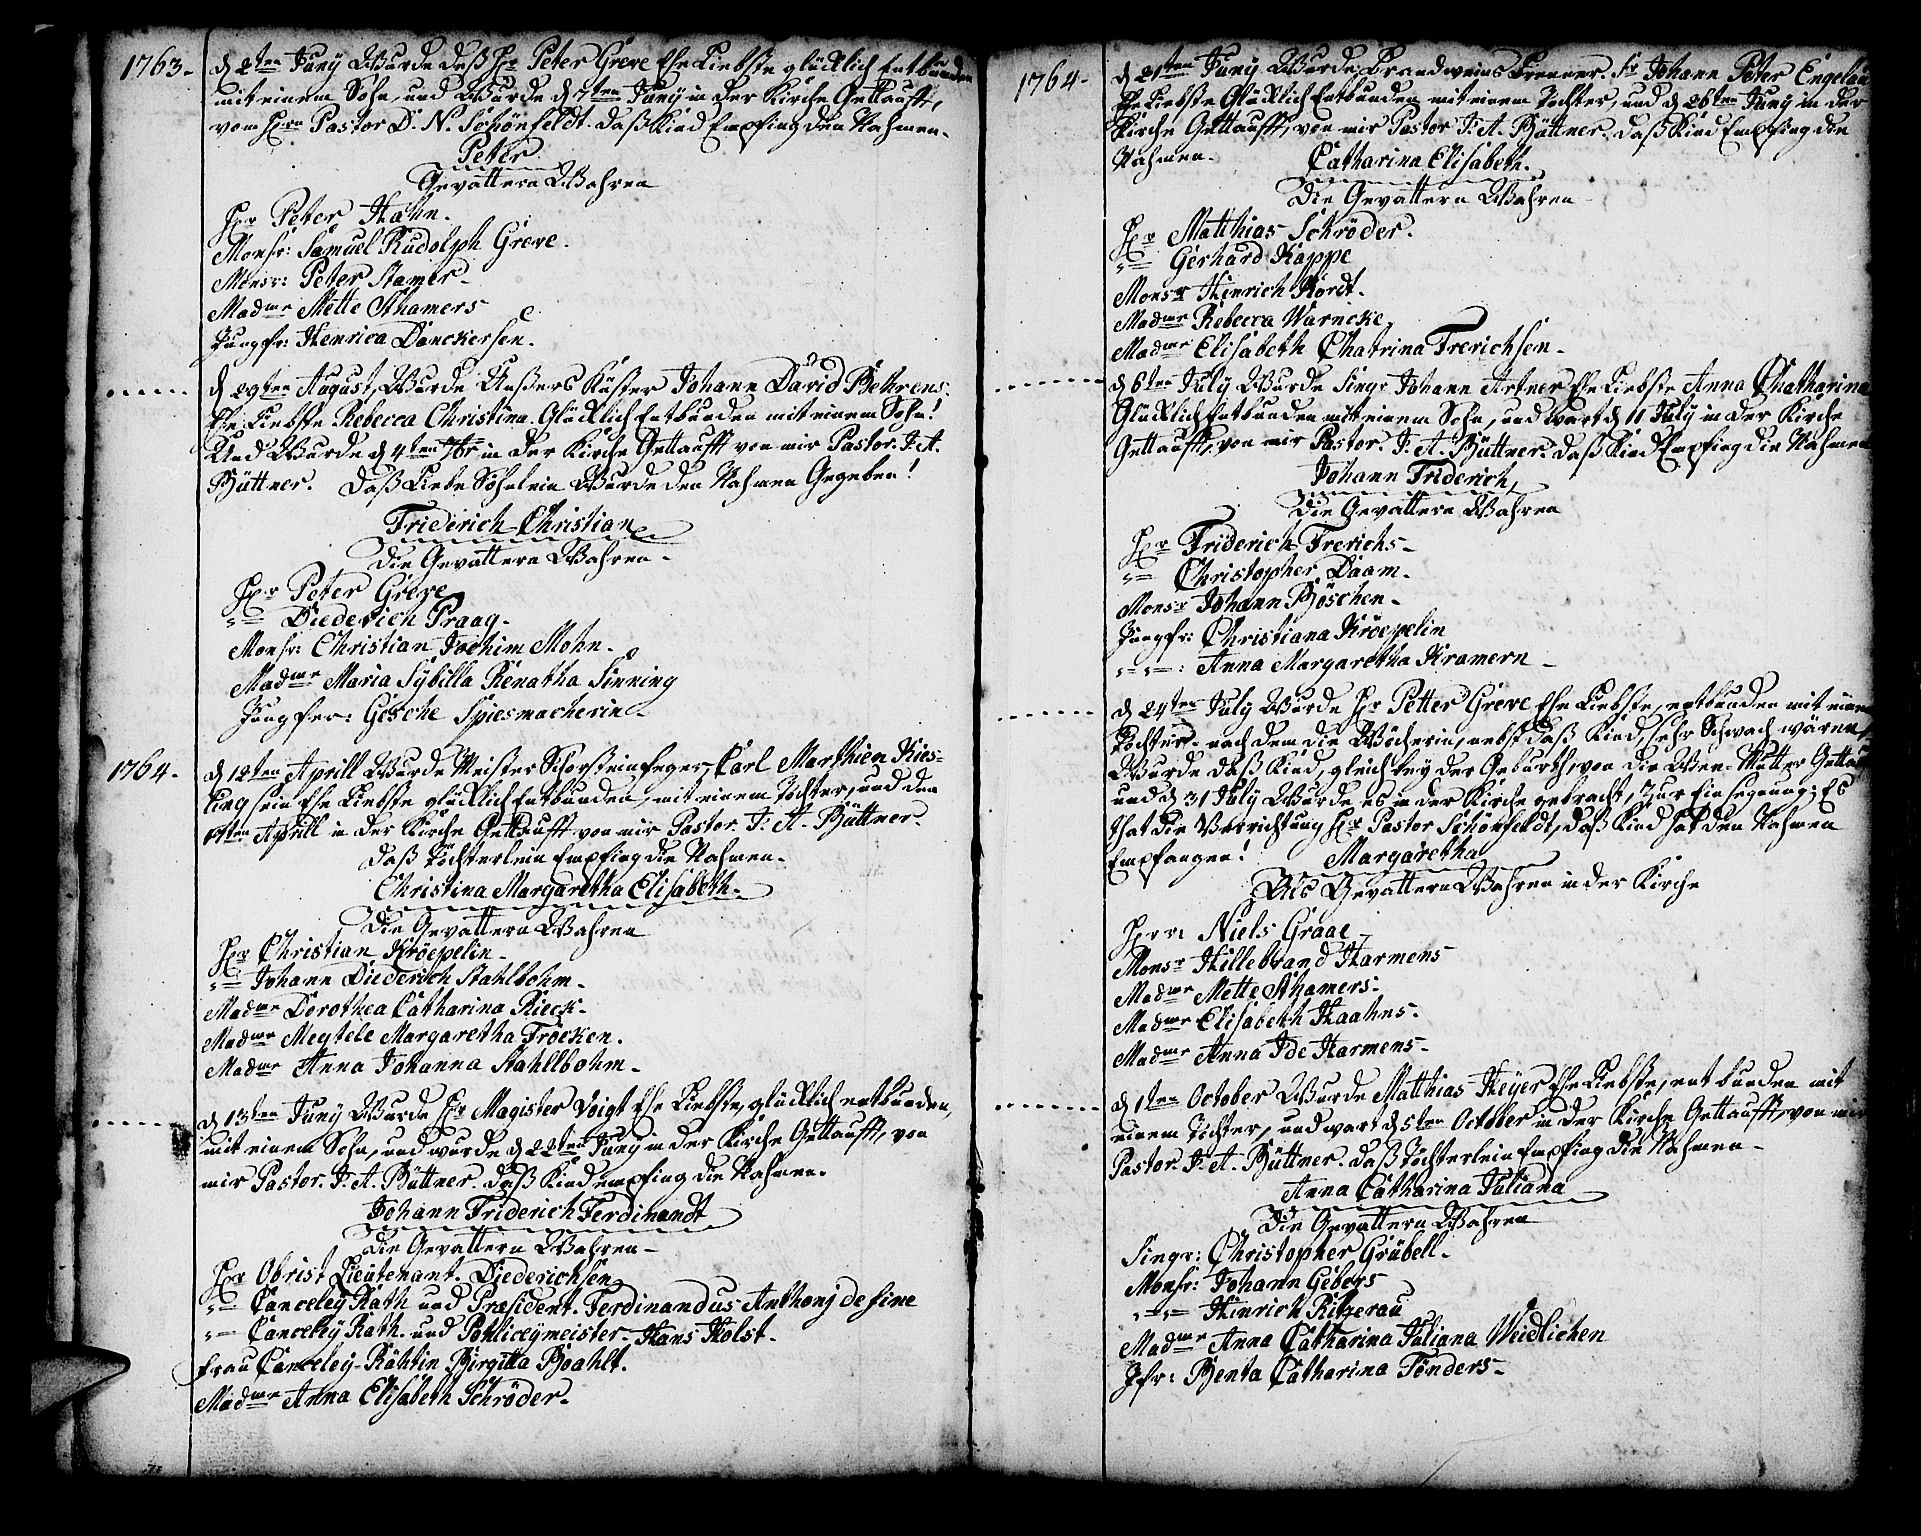 1763.
d 2ten Juny Wurde deß Hr Peter Greve Ehe Liebste glücklich Entbunden
mit einem Sohn, und Wurde d 7ten Juny in der Kirche Gettaufft,
vom Hrn Pastor D. N. Schönfeldt. daß Kind Empfing den Nahmen.
Peter
Gevattern Wahren
Hr Peter Hahn.
Monsr: Samuel Rudolph Greve.
Monsr: Peter Stamer.
Madme Mette Sthamers
Jungfr: Henrica Danckersen.
d 29ten August, Wurde Unßers Küster Johann David Behrens:
Ehe Liebste Rebecca Christina. Glücklich Entbunden mit einem Sohn!
Und Wurde d 4ten 7br in der Kirche Gettaufft von mir Pastor. J. A.
Büttner. Daß Liebe Söhnlein Wurde den Nahmen Gegeben!
Friderich Christian
Die Gevattern Wahren.
Hr Peter Greve
" Diederich Praag.
Monsr: Christian Jochim Mohn.
Madme Maria Sybilla Renatha Sinning
Jungfer: Gesche Spiesmacherin.
1764.
d 12ten Aprill Wurde Meister Schorsteinfeger, Carl Marthien Kies-
ling sein Ehe Liebste glücklich Entbunden, mit einem Tochter, und den
Aprill in der Kirche Gettaufft von mir Pastor. J. A. Büttner.
daß Töchterlein Empfing die Nahmen.
Christina Margaretha Elisabeth.
Die Gevattern Wahren
Hr Christian Kröepelin.
" Johann Diederich Stahlbohm.
Madme Dorothea Catharina Rieck.
Madme Megtele Margaretha Fröcken.
Madme Anna Johanna Stahllbohm.
d 13ten Juny Wurde Hr Magister Voigt Ehe Liebste, glücklich entbunden,
mit einem Sohn, und wurde d 22ten Juny in der Kirche Gettaufft, von
mir Pastor. J. A. Büttner. daß Kind empfing die Nahmen.
Johann Friderich Ferdinandt
Die Gevattern Wahren.
Hr Obrist Lieutenant. Diederichsen
" Canceley Rath und Præsident. Ferdinandus Anthonj de fine
" Canceley Rath. und Pohliceymeister. Hans Holst.
Frau Canceley-Rähtin Birgitta Boahlt.
Madme Anna Elisabeth Schröder.
1764.
d 21ten Juny Wurde, Brandweins Brenner. Sr Johann Peter Engelau
Ehe Liebste Glücklich Entbunden mit einem Tochter, und d 26ten Juny in der
Kirche Gettaufft, von mir Pastor J. A. Büttner. daß Kind Empfing die
Nahmen. Catharina Elisabeth.
Die Gevattern Wahren
Hr Matthias Schröder.
" Gerhard Kappe
Monsr Hinrich Kordt.
Madme Rebecca Warncke,
Madme Elisabeth Chatrina Frerichsen.
d 6ten July Wurde Singr Johann Artner Ehe Liebste Anna Chatharina
Glücklich Entbunden mit einem Sohn, und Wart d 11 July in der Kirche
Gettaufft, von mir Pastor. J. A. Büttner. daß Kind Empfing die Nahmen
Johann Friderich,
Die Gevattern Wahren
Hr Friderich Frerichs.
" Christopher Daam.
Monsr Johann Böschen.
Jungfr: Christiana Kröepelin
" " : Anna Margaretha Kramern.
d 24ten July Wurde Hr Petter Greve Ehe Liebste, entbunden mit einem
Tochter. nach dem die Wöcherin, nebst daß Kind, sehr Schwach wären
Wurde daß Kind, gleich bey der Geburth, von die Wen-Mutter Gettaufft
und d 31 July Wurde es in der Kirche gebracht, Zur Einsegnung: Es
that die Verrichtung Hr Pastor Schönfeldt, daß Kind hat den Nahmen
Empfangen! Margaretha
Als Gevattern Wahren in der Kirche
Herr Niels Graae
Monsr Hillebrand Harmens
Madme Mette Sthamers.
Madme Elisabeth Haahns.
Madme Anna Ide Harmens.
d 1ten October Wurde Matthias Heyer Ehe Liebste, entbunden mit
einem Tochter, und wart d 5ten October in der Kirche Gettaufft, von mir
Pastor. J. A. Büttner. daß Töchterlein Empfing die Nahmen.
Anna Catharina Juliana
Die Gevattern Wahren
Singr: Christopher Gräbell.
Monsr: Johann Gebers
" " Hinrich Ritzerau
Madme Anna Catharina Juliana Weidlichen
Jfr: Benta Catharina Tönders.